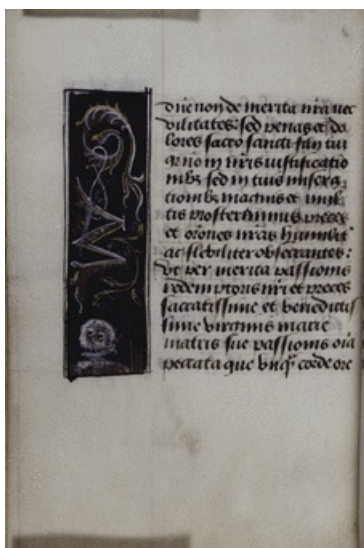 dñe non de merita nr̃a nec
vilitates: sed penas et do
lores sacro sancti filij tui
qr̃ no in nr̃is iustificatio
nibꝫ sed in tuis misera
tionibꝫ magnis et mul
tis prosternimus preces
et or̃ones nr̃as humilit̃
ac flebiliter obsecrantes:
vt per merita passionis
redemptoris nr̃i et preces
sacratissime et benedictis
sime virginis marie
matris sue passionis oĩa
peccata que vnqꝫ corde ore